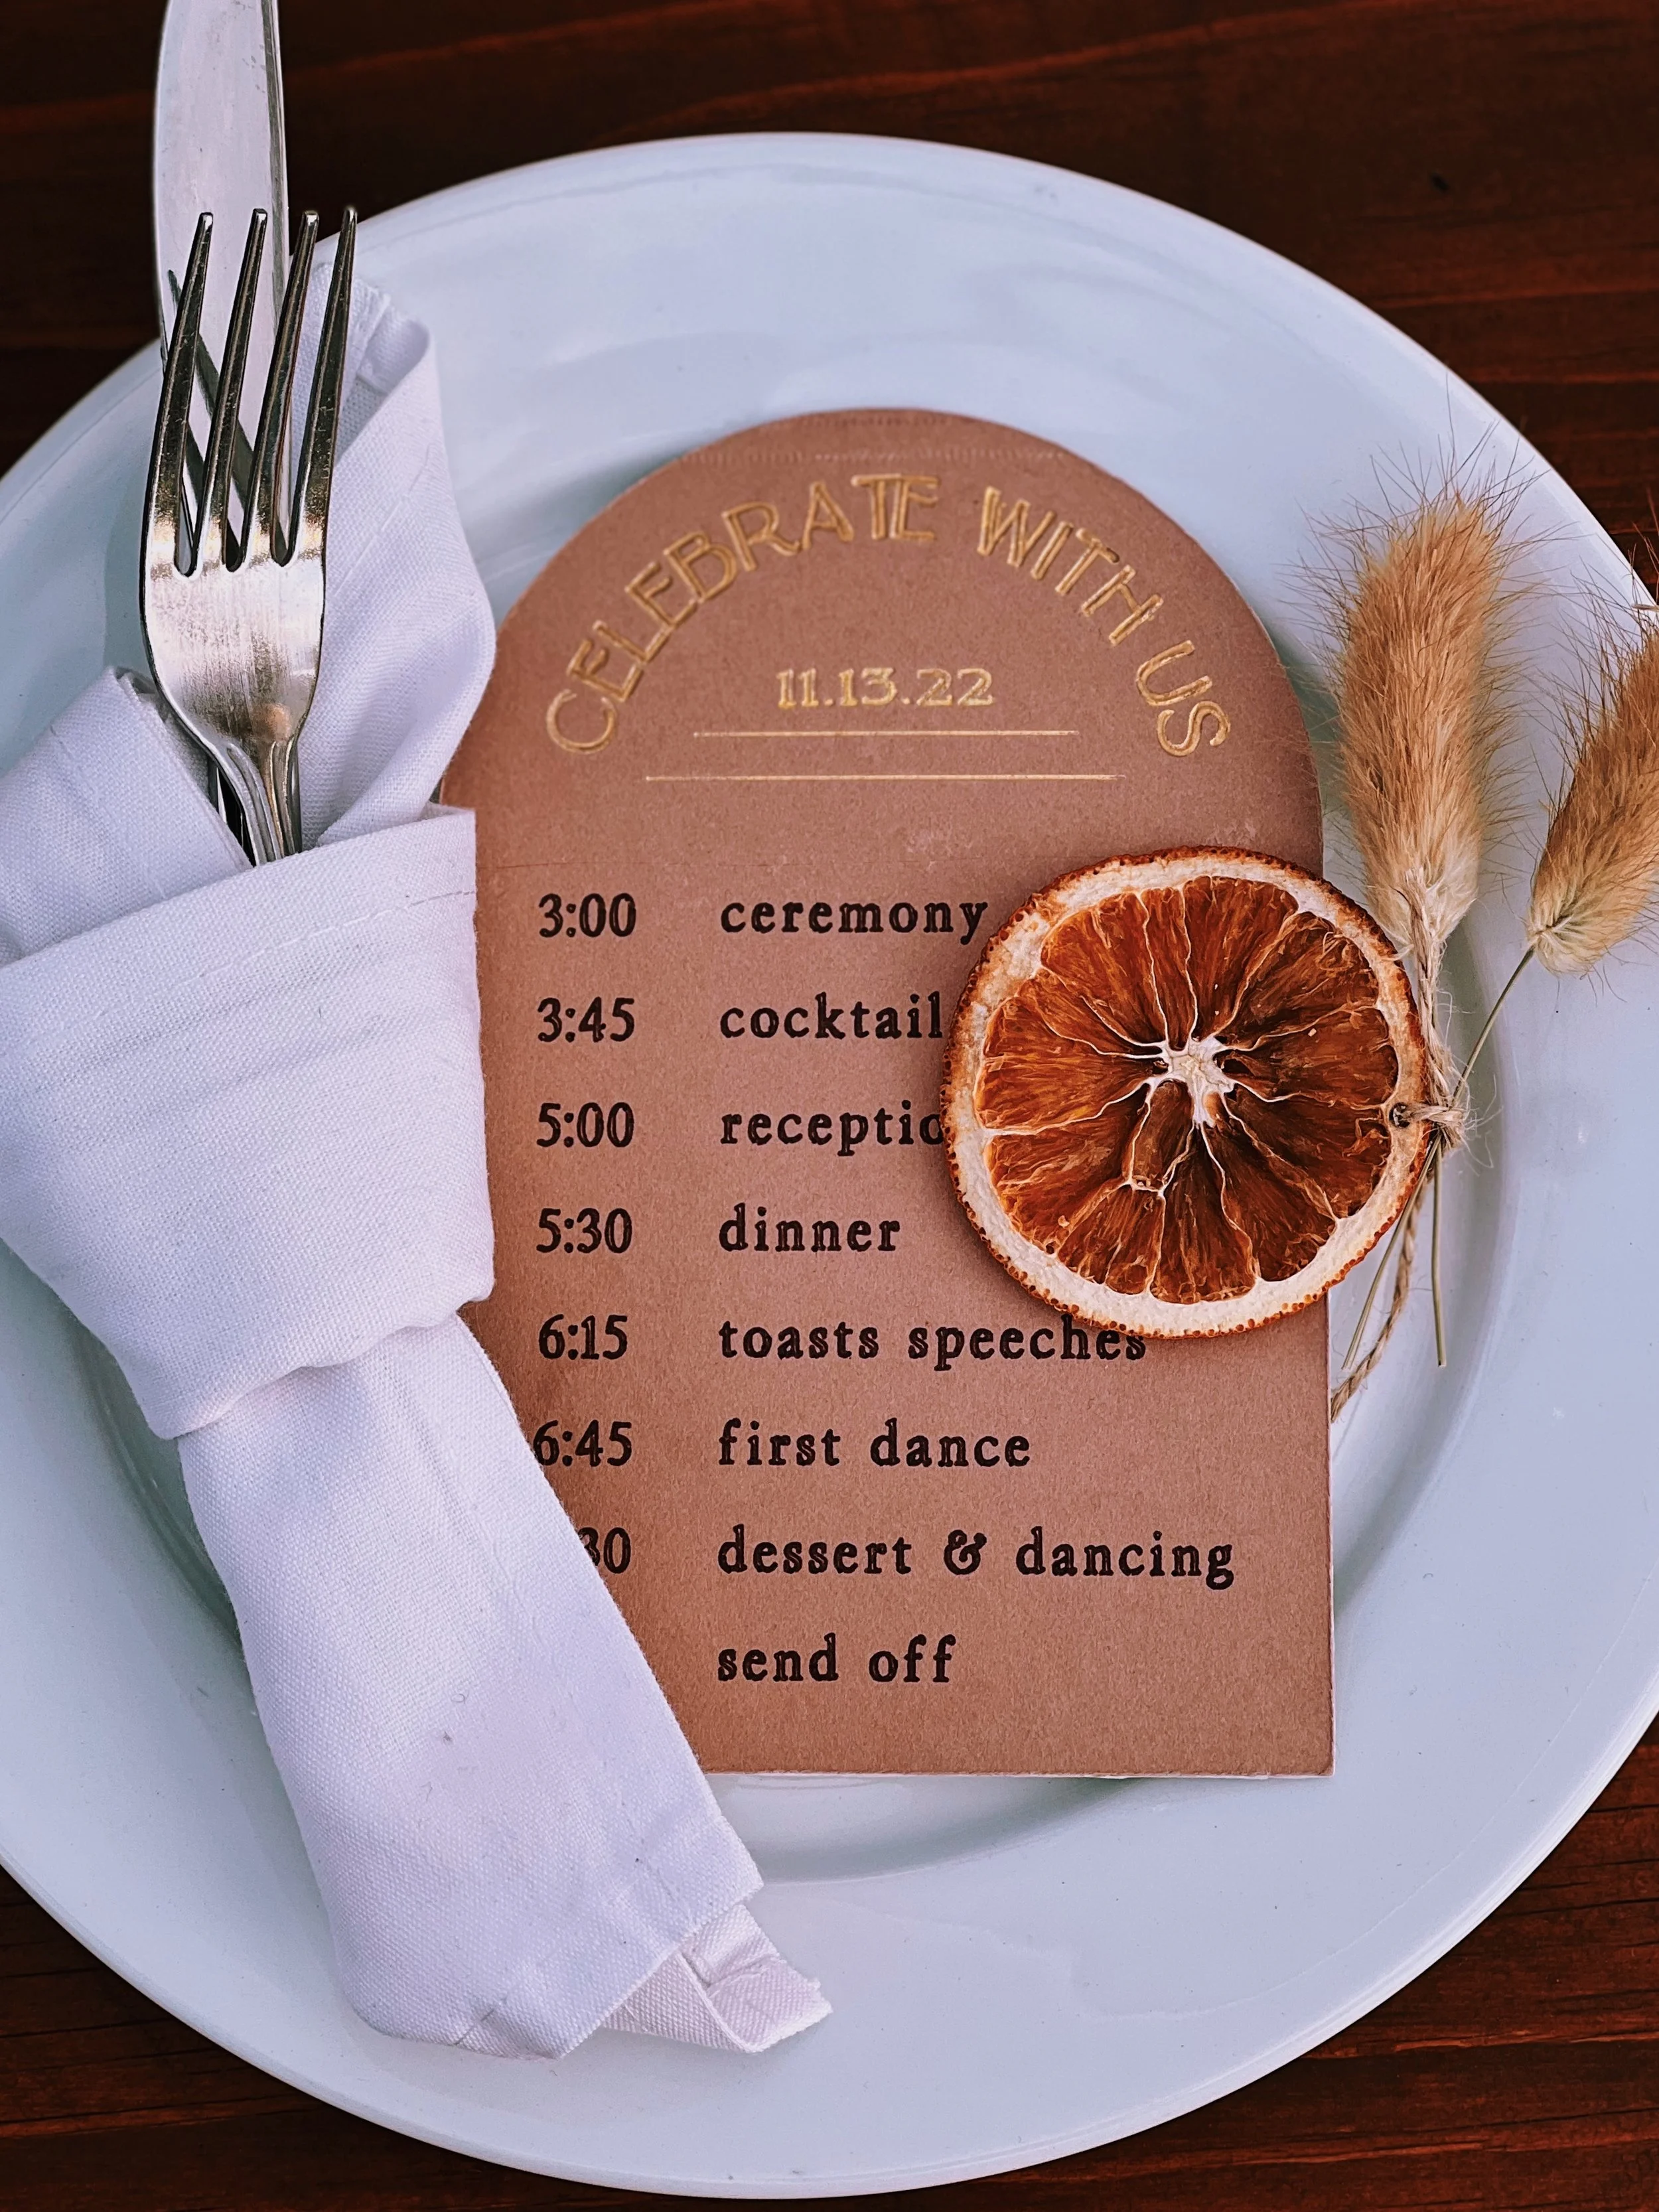 CELEBRATE WITH US
11.13.22
3:00 ceremony
3:45 cocktail
5:00 receptio
5:30 dinner
6:15 toasts speeches
6:45 first dance
30 dessert & dancing
send off